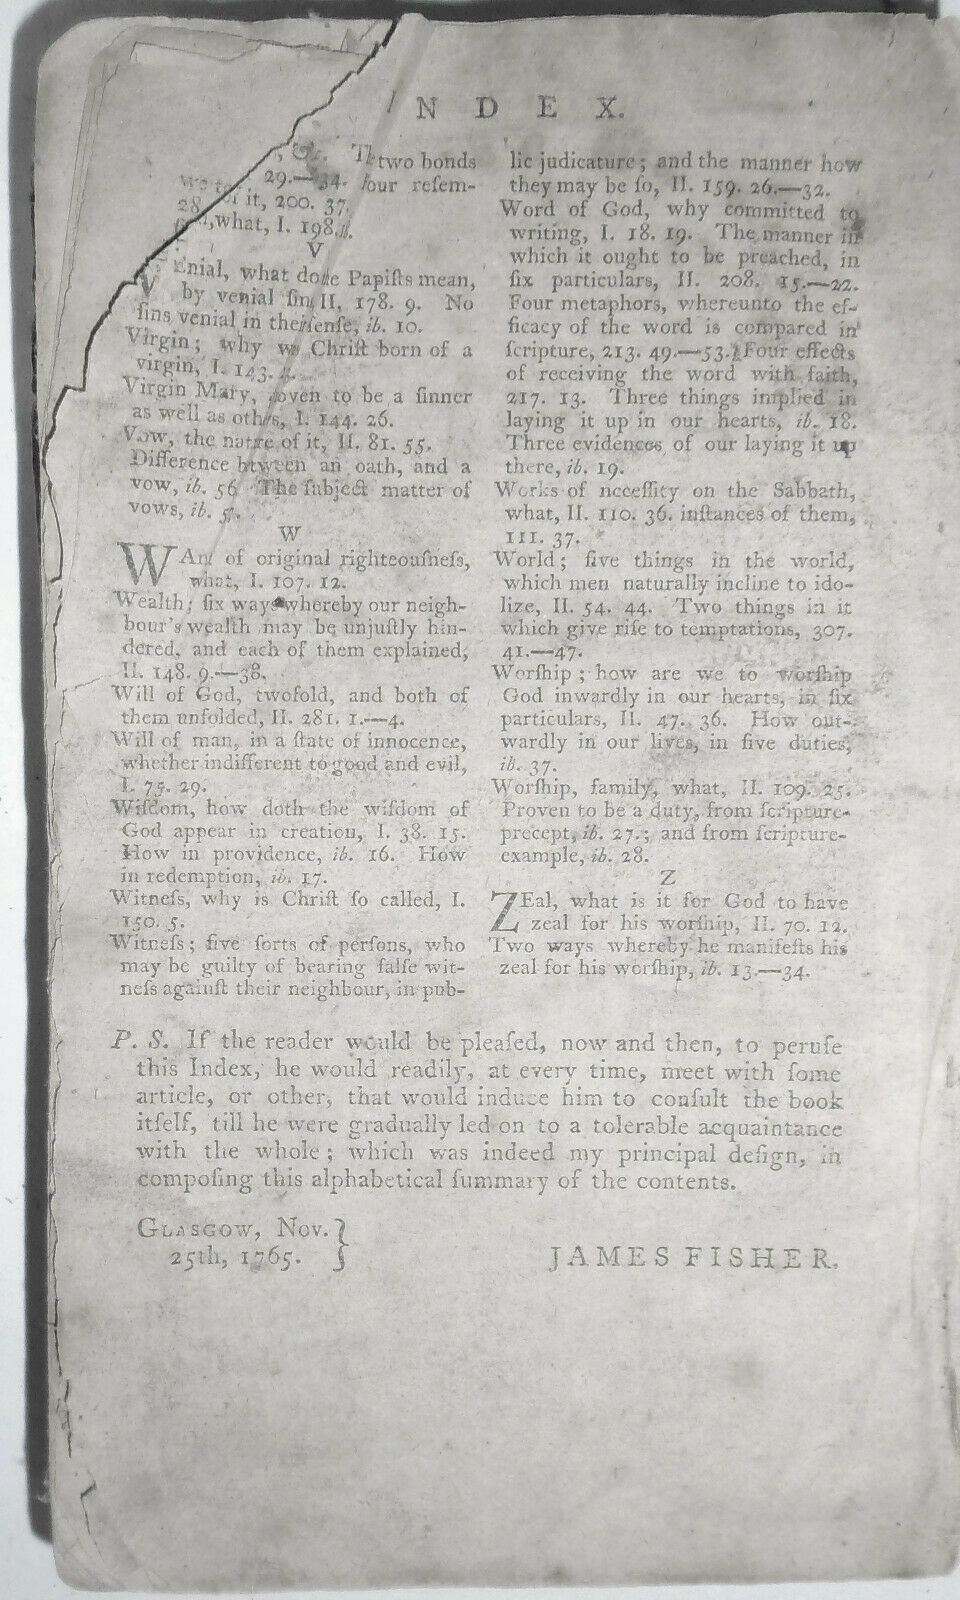 INDEX.
&c. two bonds
29.—34. four reſem-
of it, 200. 37.
28
what, I. 198.
V
VEnial, what do the Papiſts mean,
by venial ſin, II, 178. 9. No
ſins venial in their ſenſe, ib. 10.
Virgin; why was Chriſt born of a
virgin, I. 143. 
Virgin Mary, proven to be a ſinner
as well as others, I. 144. 26.
Vow, the nature of it, II. 81. 55.
Difference between an oath, and a
vow, ib. 56 The ſubject matter of
vows, ib. 
W
WAnt of original righteouſneſs,
what, I. 107. 12.
Wealth; ſix ways whereby our neigh-
bour's wealth may be unjuſtly hin-
dered, and each of them explained,
II. 148. 9.—38.
Will of God, twofold, and both of
them unfolded, II. 281. 1.—4.
Will of man, in a ſtate of innocence,
whether indifferent to good and evil,
I. 75. 29.
Wiſdom, how doth the wiſdom of
God appear in creation, I. 38. 15.
How in providence, ib. 16. How
in redemption, ib. 17.
Witneſs, why is Chriſt ſo called, I.
150. 5.
Witneſs; five ſorts of perſons, who
may be guilty of bearing falſe wit-
neſs againſt their neighbour, in pub-
lic judicature; and the manner how
they may be ſo, II. 159. 26.—32.
Word of God, why committed to
writing, I. 18. 19. The manner in
which it ought to be preached, in
ſix particulars, II. 208. 15.—22.
Four metaphors, whereunto the ef-
ficacy of the word is compared in
ſcripture, 213. 49.—53. Four effects
of receiving the word with faith,
217. 13. Three things implied in
laying it up in our hearts, ib. 18.
Three evidences of our laying it up
there, ib. 19.
Works of neceſſity on the Sabbath,
what, II. 110. 36. inſtances of them,
111. 37.
World; five things in the world,
which men naturally incline to ido-
lize, II. 54. 44. Two things in it
which give riſe to temptations, 307.
41.—47.
Worſhip; how are we to worſhip
God inwardly in our hearts, in ſix
particulars, II. 47. 36. How out-
wardly in our lives, in five duties,
ib. 37.
Worſhip, family, what, II. 109. 25.
Proven to be a duty, from ſcripture-
precept, ib. 27.; and from ſcripture-
example, ib. 28.
Z
ZEal, what is it for God to have
zeal for his worſhip, II. 70. 12.
Two ways whereby he manifeſts his
zeal for his worſhip, ib. 13.—34.
P. S. If the reader would be pleaſed, now and then, to peruſe
this Index, he would readily, at every time, meet with ſome
article, or other, that would induce him to conſult the book
itſelf, till he were gradually led on to a tolerable acquaintance
with the whole; which was indeed my principal deſign, in
compoſing this alphabetical ſummary of the contents.
GLASGOW, Nov. }
25th, 1765.
JAMES FISHER.